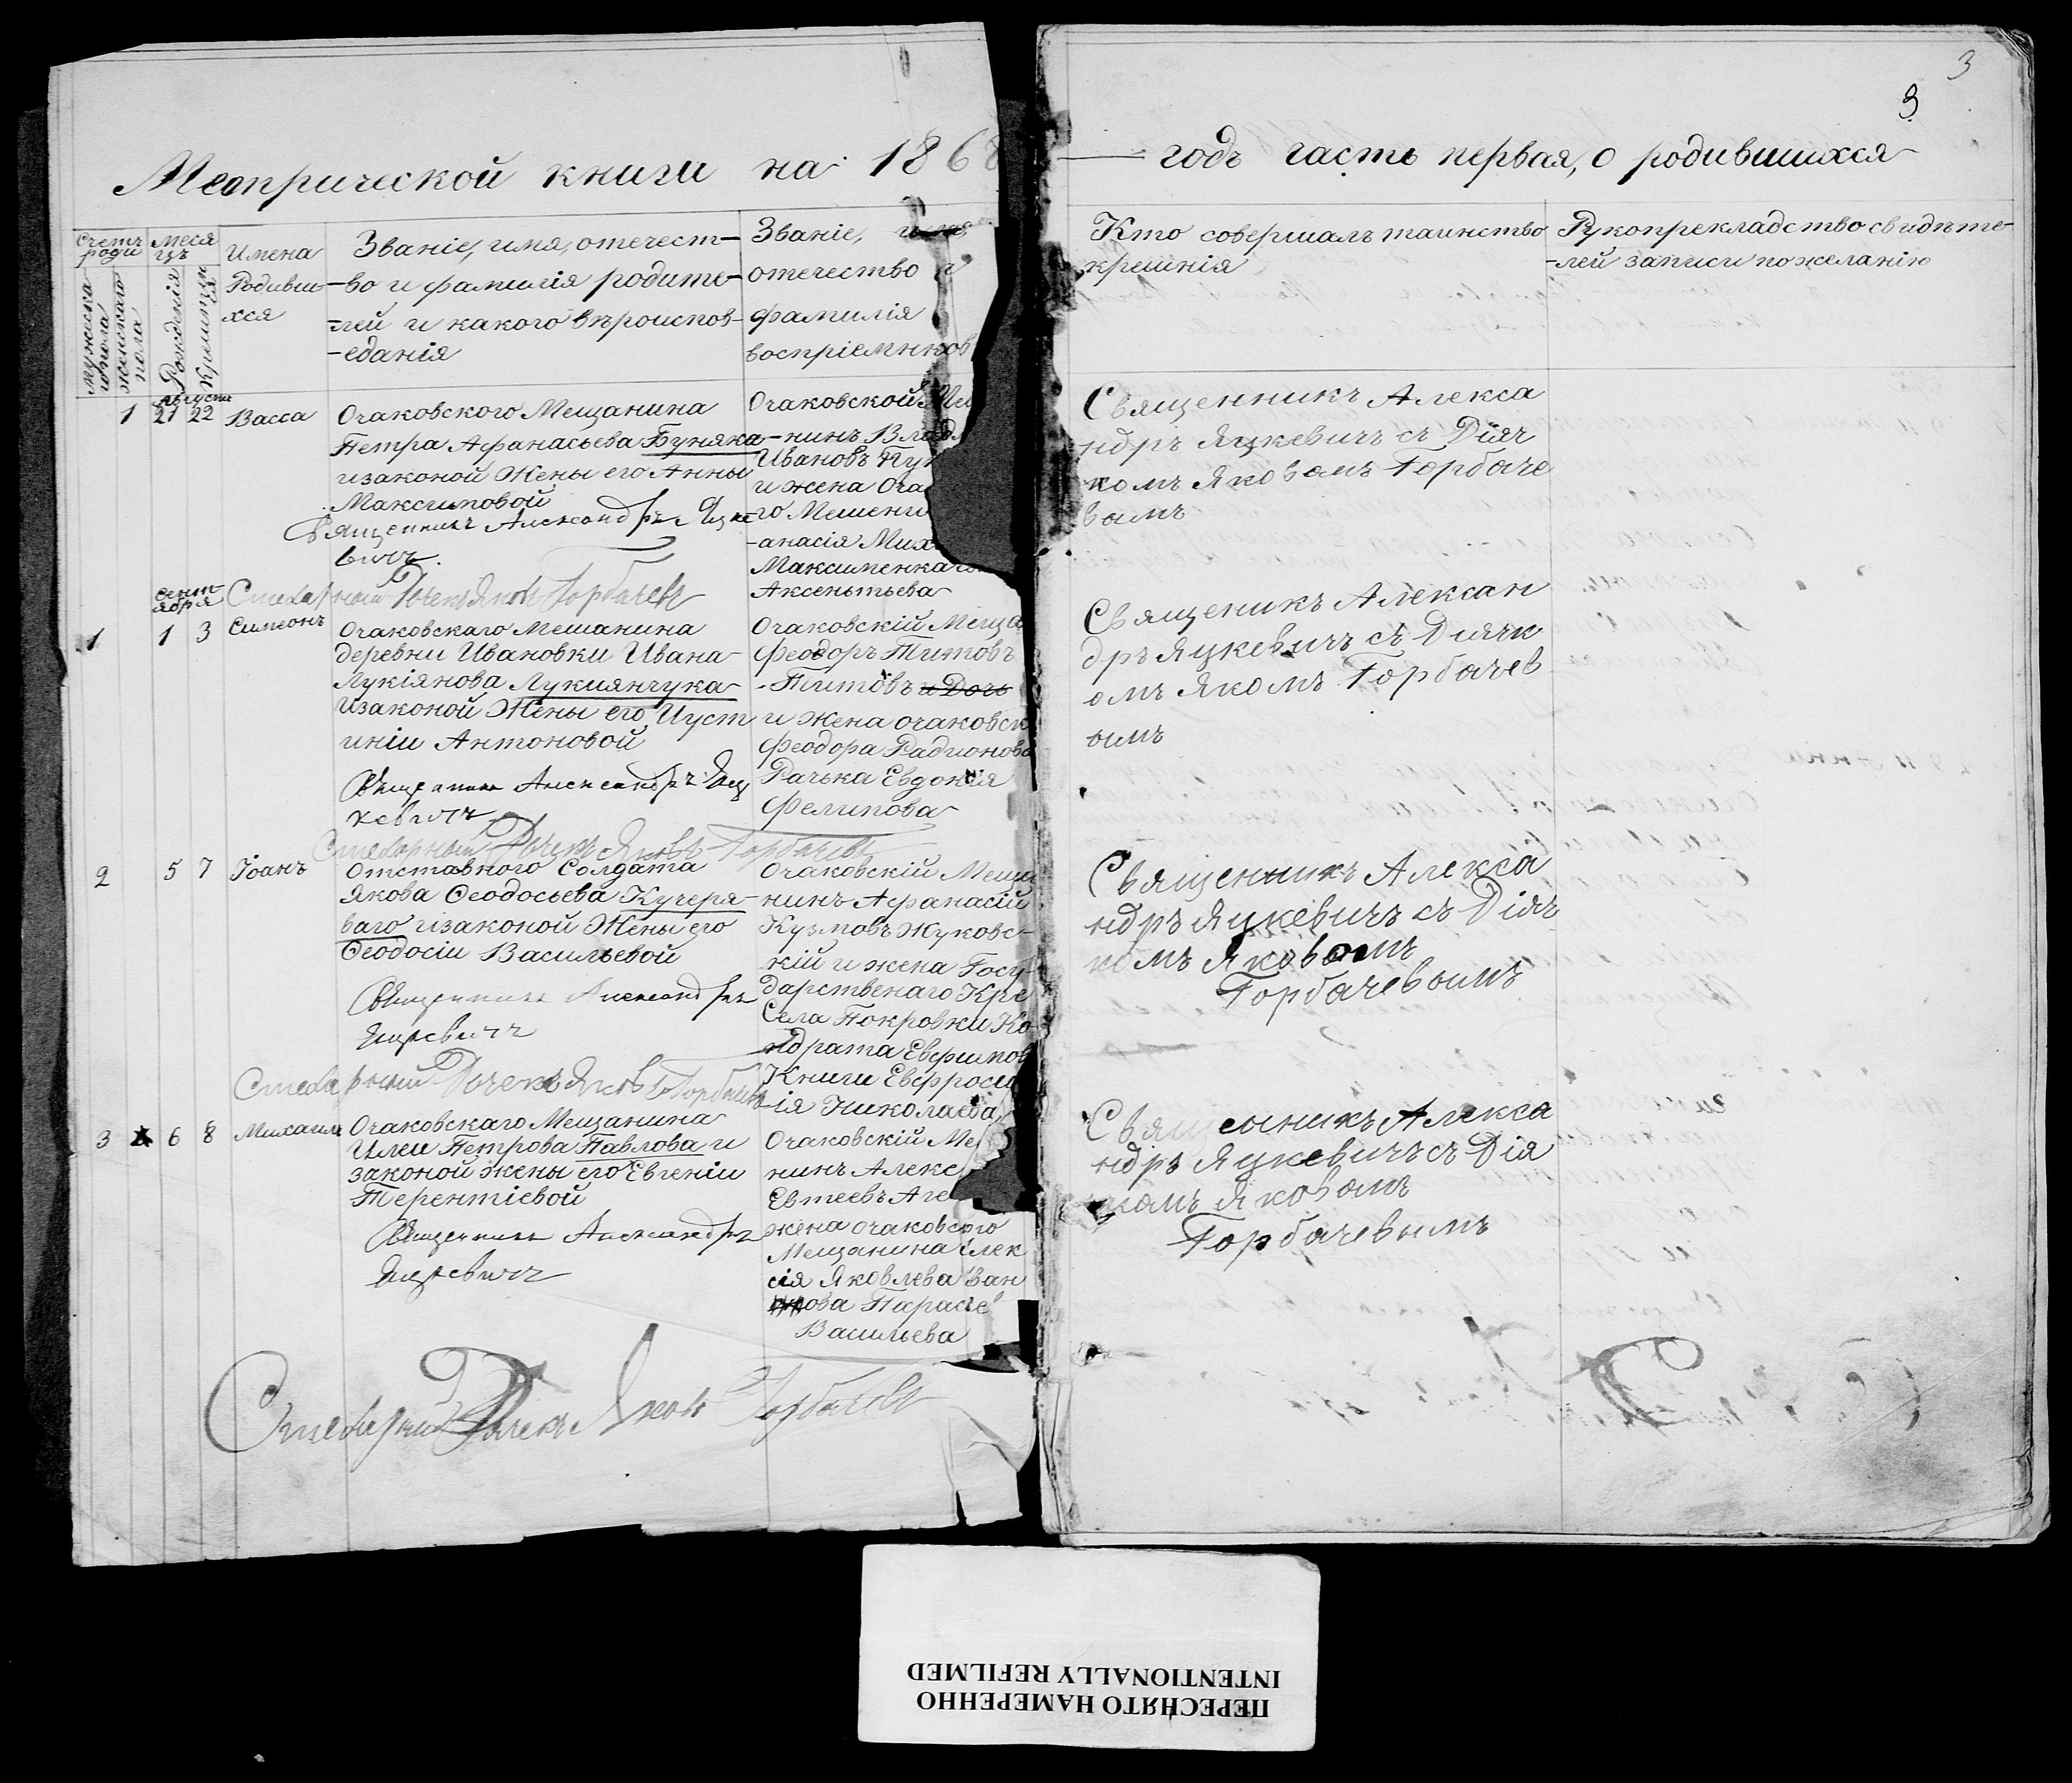 3
3
Метрической книги на 1868
годъ часть первая, о родившихся
Счетъ роди
Меся цъ
мужеска го пола
женскаго пола
Рожденія
Крещенія
Имена
Родивши-
хся
Званіе, имя, отечест-
-во и фамилія родите-
-лей и какого вѣроиспов-
-еданія
Званіе, имя
отечество и
фамилія
воспріемнков
Кто совершалъ таинство
крешнія
Рукопрекладство свидѣте-
-лей записи по желанію
Августа
1 21 22 Васса
Очаковского Мещанина
Петра Афанасьева Буняка
и законой Жены его Анны
Максимовой
Священникъ Александръ Яцке
вичъ.
Очаковской Ме
-нинъ Влад
Ивановъ Пу
и жена Оча
го Мешени
-анасія Мих
Максименка
Аксентьева
Священникъ Алекса
ндръ Яцкевичъ съ Діяч
комъ Яковомъ Горбаче
вымъ
Дьячекъ Яковъ Горбачевъ
сент
ября
1 1 3 Симеонъ
Очаковскаго Мешанина
деревни Ивановки Ивана
Лукіянова Лукиянчука
и законой Жены его Иуст
иніи Антоновой
Священникъ Александръ Яц
кевичъ
Очаковскій Меща
Феодоръ Титовъ
-Титовъ и Дочь
и жена очаковск
Феодора Радионова
Рачька Евдокія
Фелипова
Священикъ Алексан
дръ Яцкевичъ съ Диячк
омъ Якомъ Горбачев
ымъ
Дьячекъ Яковъ Горбачевъ
2 5 7 Іоанъ
Отставного Солдата
Якова Ѳеодосьева Кучеря-
ваго и законой Жены его
Ѳеодосіи Васильевой
Священникъ Александръ
Яцкевичъ
Очаковскій Меща
нинъ Афанасій
Кузмовъ Жуковс-
кій и жена Госу-
дарственаго Кре
Села Покровки Ко-
ндрата Евфимов
Книги Евфроси
-ія Николаева
Священникъ Алекса
ндръ Яцкевичъ съ Діяч
комъ Яковомъ
Горбачевымъ
Дьячекъ Яковъ Горбачевъ
3 6 8 Михаилъ
Очаковскаго Мещанина
Илеи Петрова Павлова и
законой жены его Евгеніи
Терентіевой
Священникъ Александръ
Яцкевичъ
Очаковскій Ме
нинъ Алекс
Евтеевъ Аге
жена очаковского
Мещанина Алек
сія Яковлева Иван
ова Параскев
Васильева
Священикъ Алекса
ндръ Яцкевичъ съ Дія
комъ Яковомъ
Горбачевымъ
Дьячекъ Яковъ Горбачевъ
ПЕРЕСНЯТО НАМЕРЕННО
INTENTIONALLY REFILMED